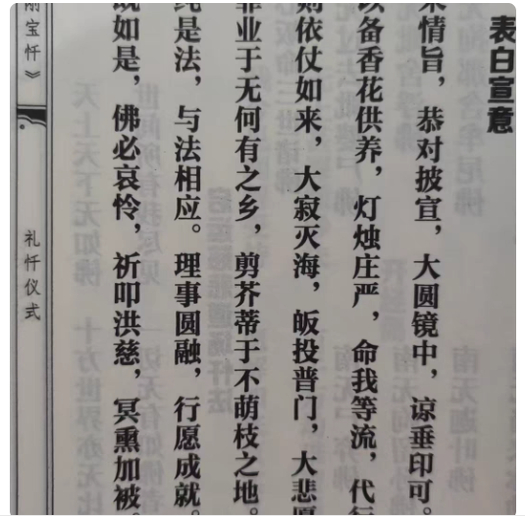 表白宣意
来情旨，恭对披宣，大圆镜中，谅垂印可。
以备香花供养，灯烛庄严，命我等流，代行
则依仗如来，大寂灭海，皈投普门，大悲愿
罪业于无何有之乡，剪芥蒂于不萌枝之地。
纯是法，与法相应。理事圆融，行愿成就。
既如是，佛必哀怜，祈叩洪慈，冥熏加被。
刚宝忏》
礼忏仪式